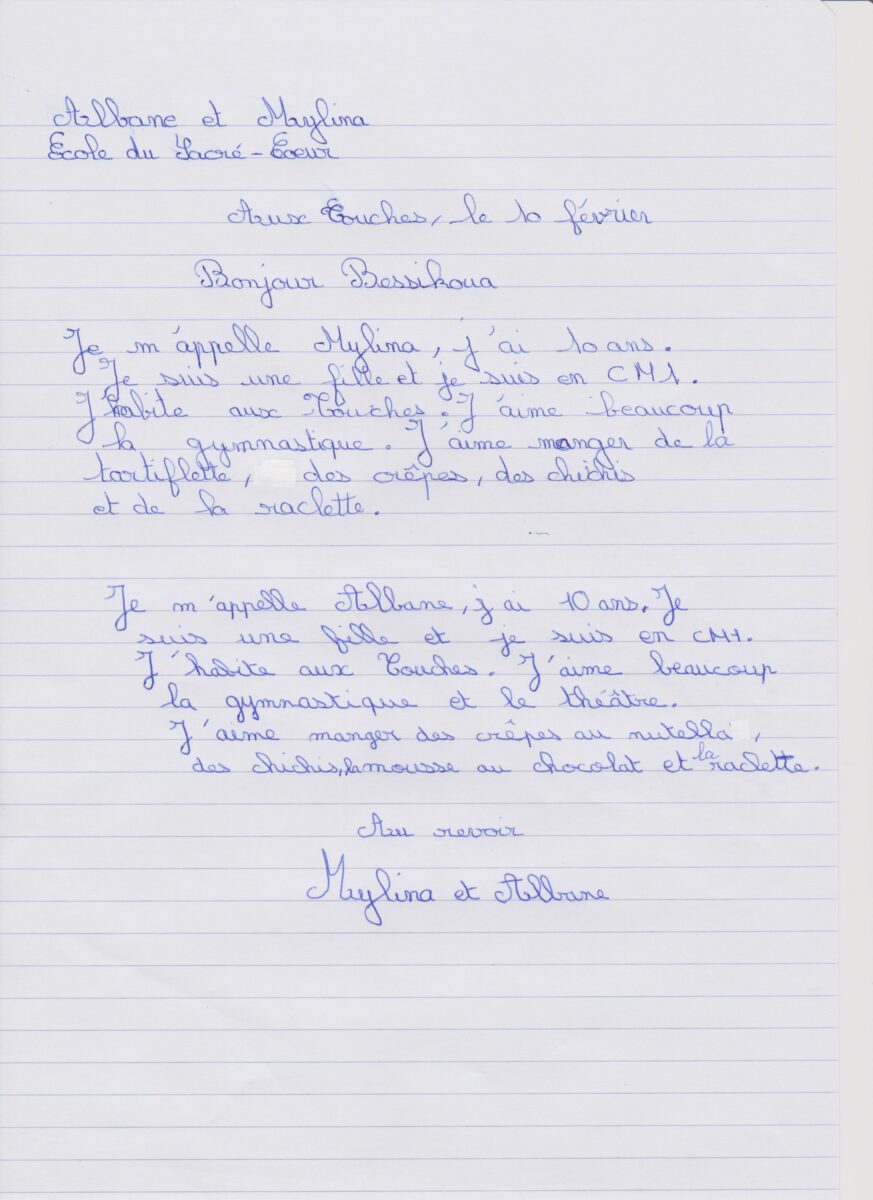 Albane et Mylina
Ecole du Sacré-Coeur
Aux Touches, le 10 février
Bonjour Bessikoua
Je m'appelle Mylina, j'ai 10 ans.
Je suis une fille et je suis en CM1.
J'habite aux Touches. J'aime beaucoup
la gymnastique. J'aime manger de la
tartiflette, des crêpes, des chichis
et de la raclette.
Je m'appelle Albane, j'ai 10 ans. Je
suis une fille et je suis en CM1.
J'habite aux Touches. J'aime beaucoup
la gymnastique et le théâtre.
J'aime manger des crêpes au nutella,
des chichis, la mousse au chocolat et la raclette.
Au revoir
Mylina et Albane